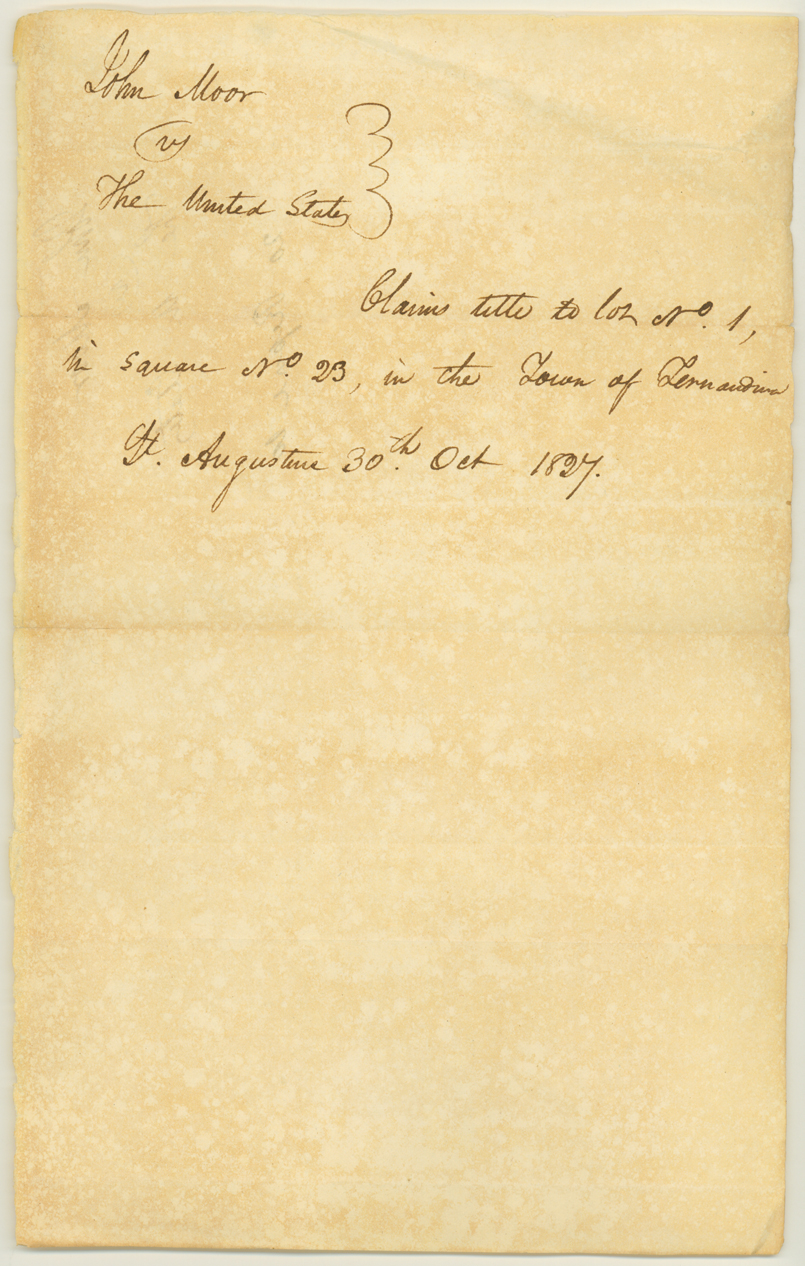 John Moor
vs
The United States
Claims title to lot No. 1,
in square No. 23, in the Town of Fernandina
St. Augustine 30th. Oct 1827.